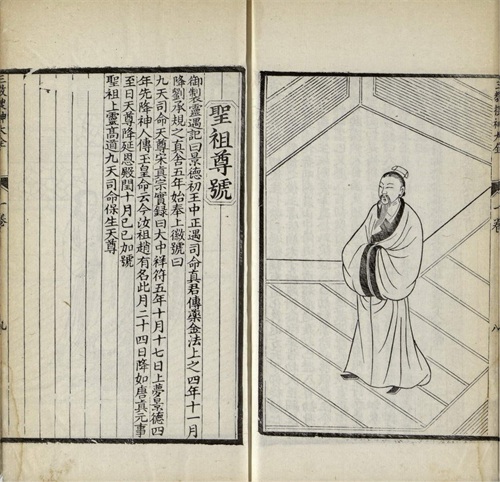 聖祖尊號
御製靈遇記曰景德初王中正遇司命真君傳藥金法上之四年十一月
降劉承規之真舍五年始奉上徽號曰
九天司命天尊宋真宗實録曰大中祥符五年十月十七日上夢景德四
年先降神人傳玉皇命云今汝祖趙有名此月二十四日降如唐真元事
至日天尊降延恩殿閏十月己巳加號
聖祖上靈高道九天司命保生天尊
三教搜神大全
一卷
九